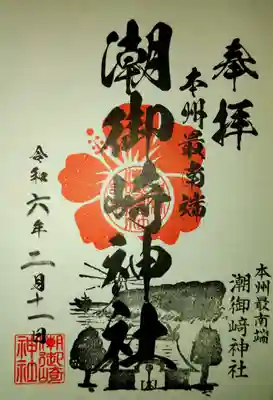 奉拝
本州最南端
潮御崎神社
令和六年二月十一日
本州最南端
潮御﨑神社
潮御崎神社